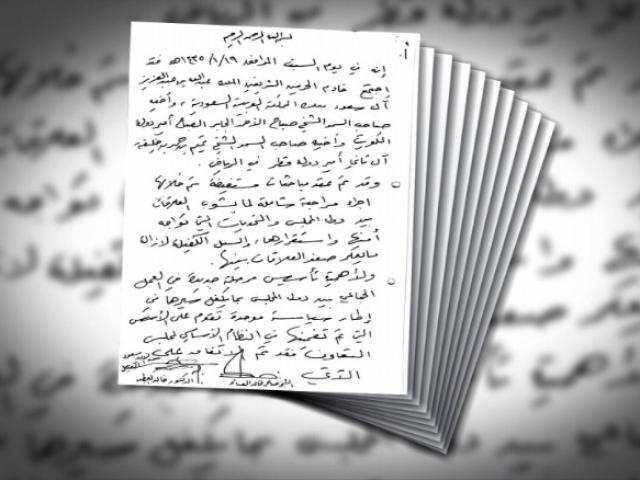 بسم الله الرحمن الرحيم
إنه في يوم السبت الموافق ١٩/١/١٤٣٥هـ فقد
اجتمع خادم الحرمين الشريفين الملك عبدالله بن عبدالعزيز
آل سعود ملك المملكة العربية السعودية، وأخيه
صاحب السمو الشيخ صباح الأحمد الجابر الصباح أمير دولة
الكويت وأخيه صاحب السمو الشيخ تميم بن حمد بن خليفة
آل ثاني أمير دولة قطر في الرياض.
وقد تم عقد مباحثات مستفيضة تم خلالها
اجراء مراجعة شاملة لما يشوب العلاقات
بين دول المجلس والتحديات التي تواجه
أمنها واستقرارها، والسبل الكفيلة لإزالة
ما يعكر صفو العلاقات بينها.
ولأهمية تأسيس مرحلة جديدة في العمل
الجماعي بين دول المجلس بما يكفل سيرها في
إطار سياسة موحدة تقوم على الأسس
التي تم تضمينها في النظام الأساسي لمجلس
التعاون فقد تم الاتفاق على
الآتي: